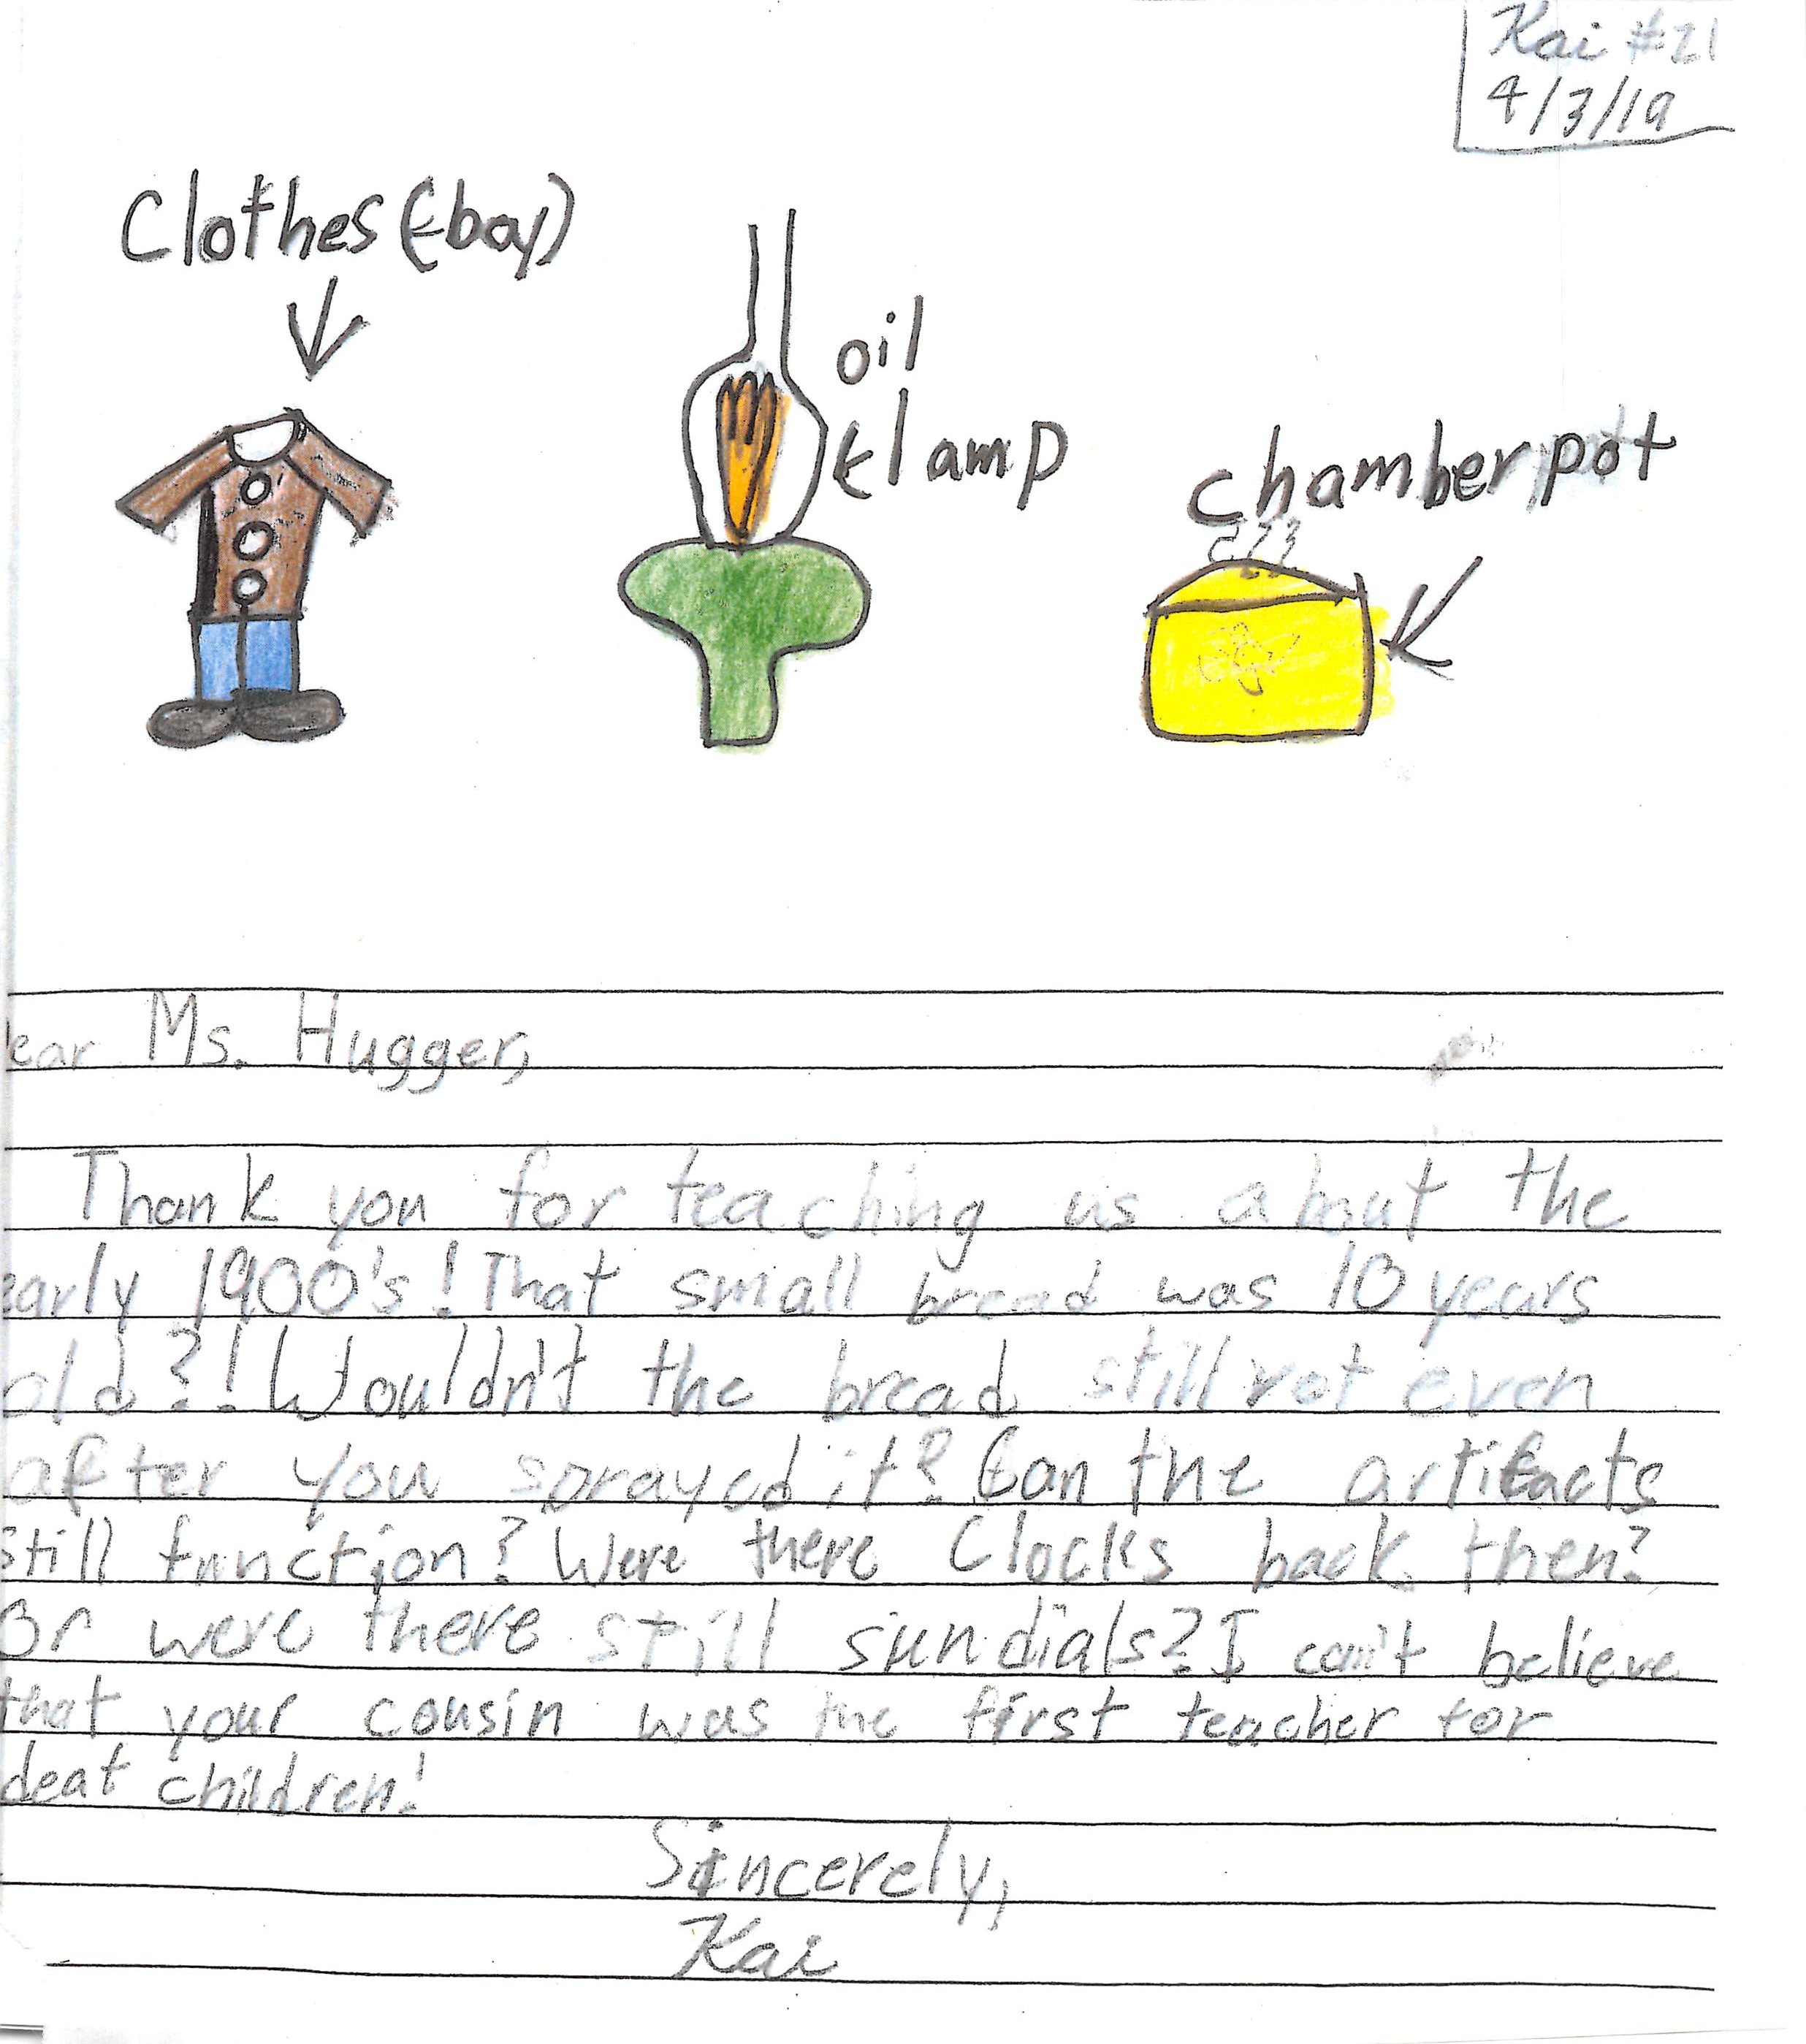 Kai #21
4/3/19
Clothes (boy)
oil
lamp
chamber pot
ear Ms. Hugger,
Thank you for teaching us about the
early 1900's! That small bread was 10 years
old?! Wouldn't the bread still rot even
after you sprayed it? Can the artifacts
still function? Were there Clocks back then?
Or were there still sundials? I can't believe
that your cousin was the first teacher for
deaf children!
Sincerely,
Kai